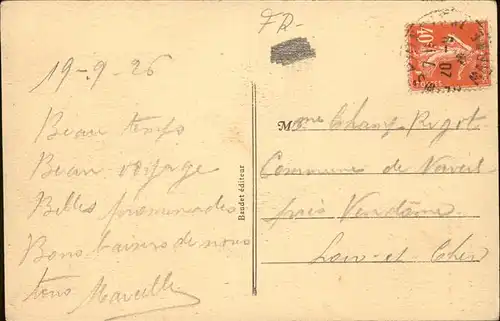 FR-
19-9-26
Beau temps
Beau voyage
Belles promenades
Bons baisers de nous
tous Marcelle
Baudet éditeur
Mme Champ-Rigot
Commune de Naveil
près Vendôme
Loir-et-Cher
40c